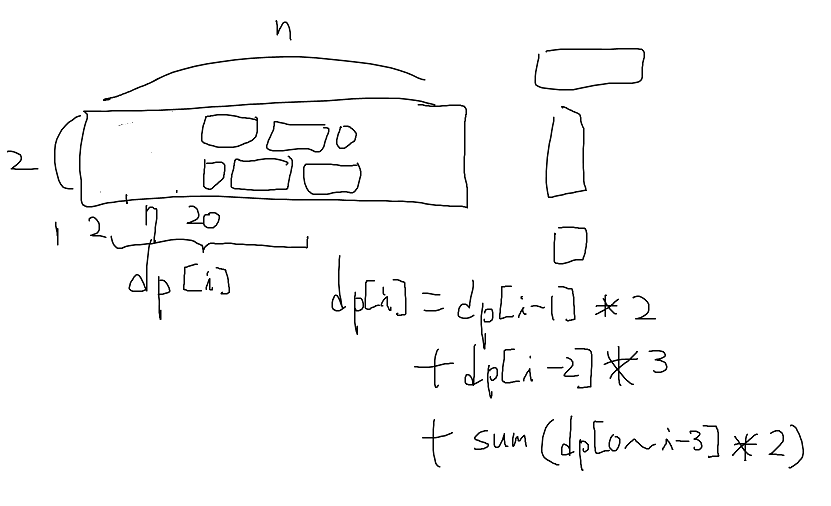 n
2
1 2 n 20
dp[i]
dp[i] = dp[i-1] * 2
+ dp[i-2] * 3
+ sum(dp[0~i-3] * 2)